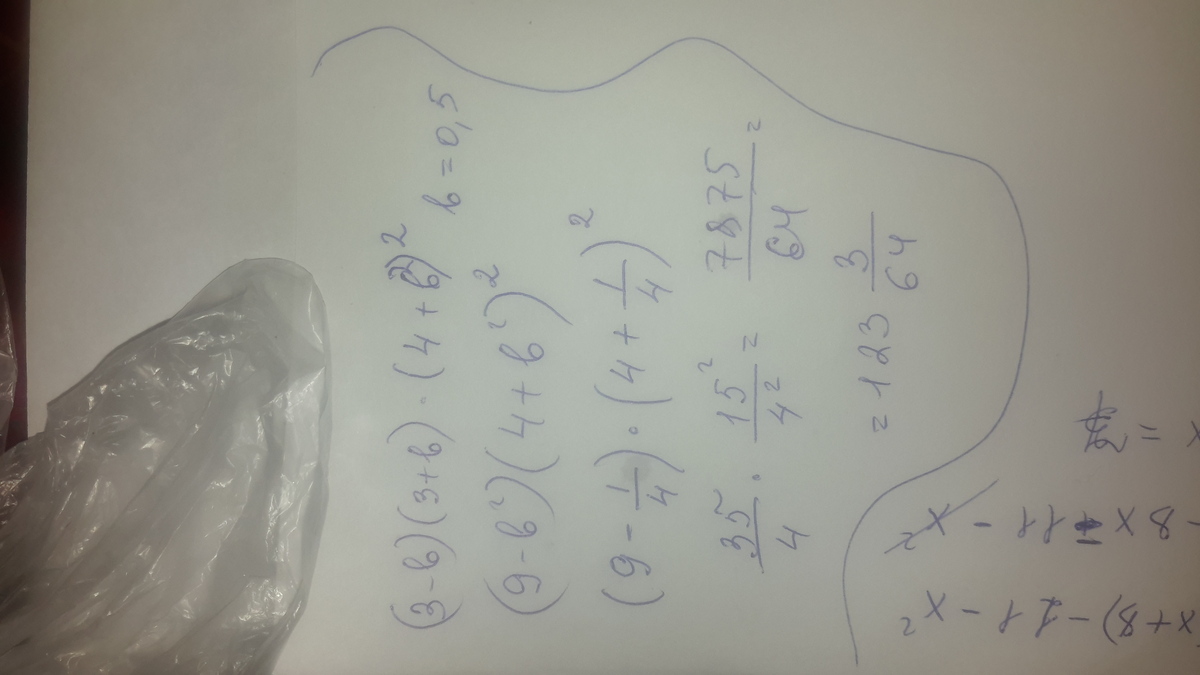 (3-b)(3+b)·(4+b)² b=0,5
(9-b²)(4+b²)²
(9-1/4)·(4+1/4)²
35/4 · 15²/4² = 7875/64 =
= 123 3/64
x+8)-11-x²
-8x+11-x²
x =